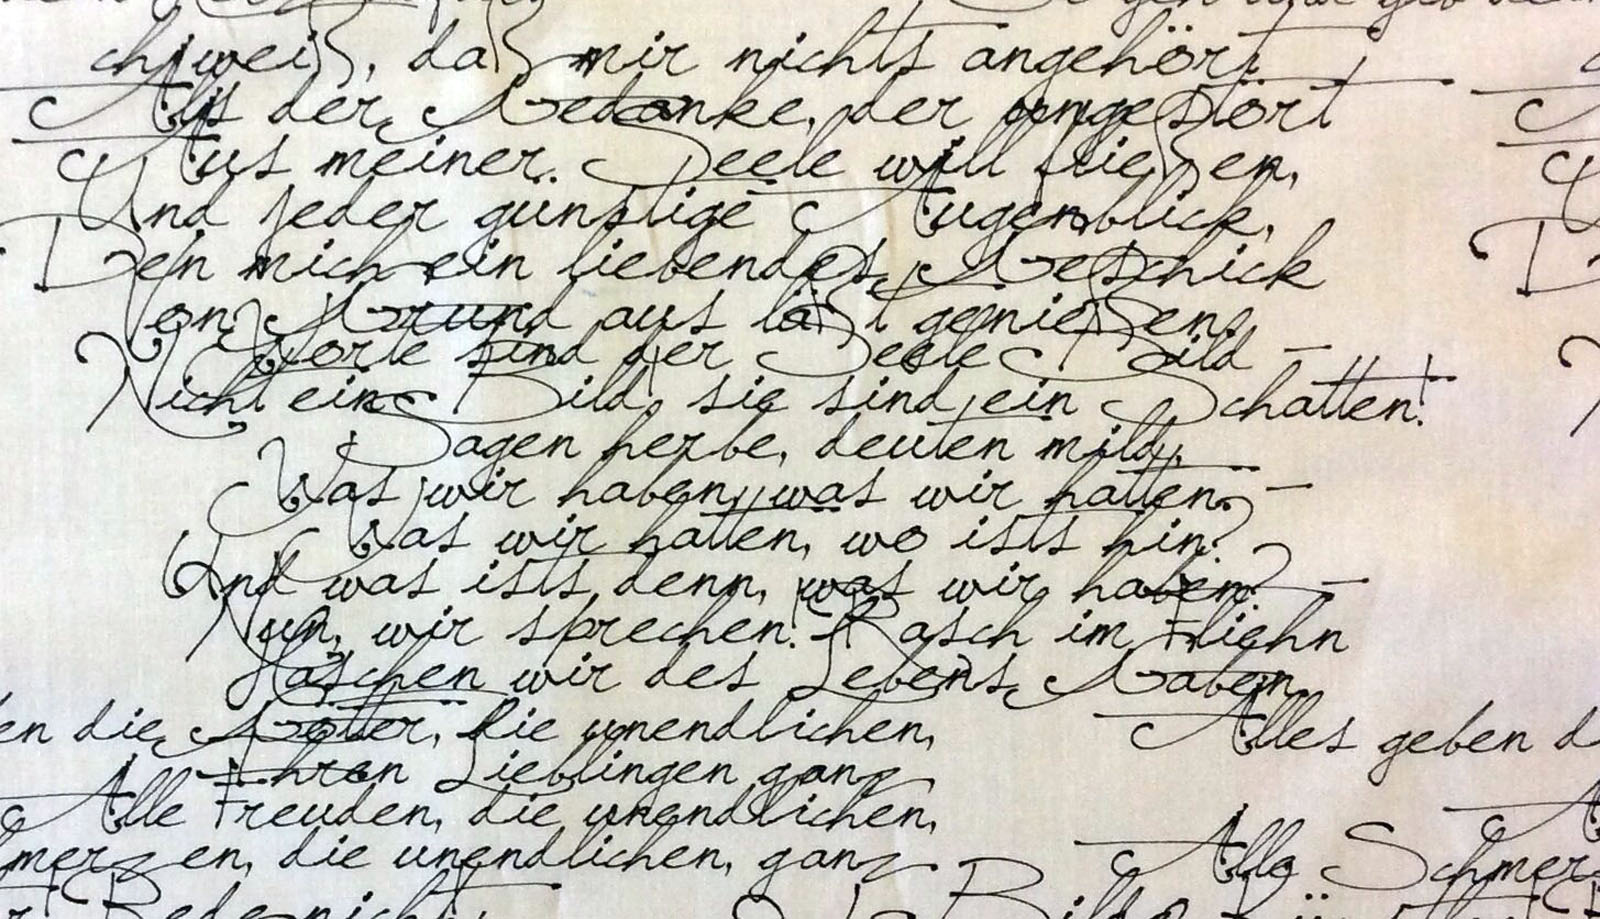 ch weiß, daß mir nichts angehört
Als der Gedanke, der ungestört
Aus meiner Seele will fließen,
Und jeder günstige Augenblick,
Den mich ein liebendes Geschick
Von Grund aus läßt genießen.
Worte sind der Seele Bild –
Nicht ein Bild, sie sind ein Schatten!
Sagen herbe, deuten mild,
Was wir haben, was wir hatten. –
Was wir hatten, wo ists hin?
Und was ists denn, was wir haben? –
Nun, wir sprechen! Rasch im Fliehn
Haschen wir des Lebens Gaben.
en die Götter, die unendlichen,
Alles geben d
Ihren Lieblingen ganz
Alle Freuden, die unendlichen,
merzen, die unendlichen, ganz
Alle Schmer
Rede nicht